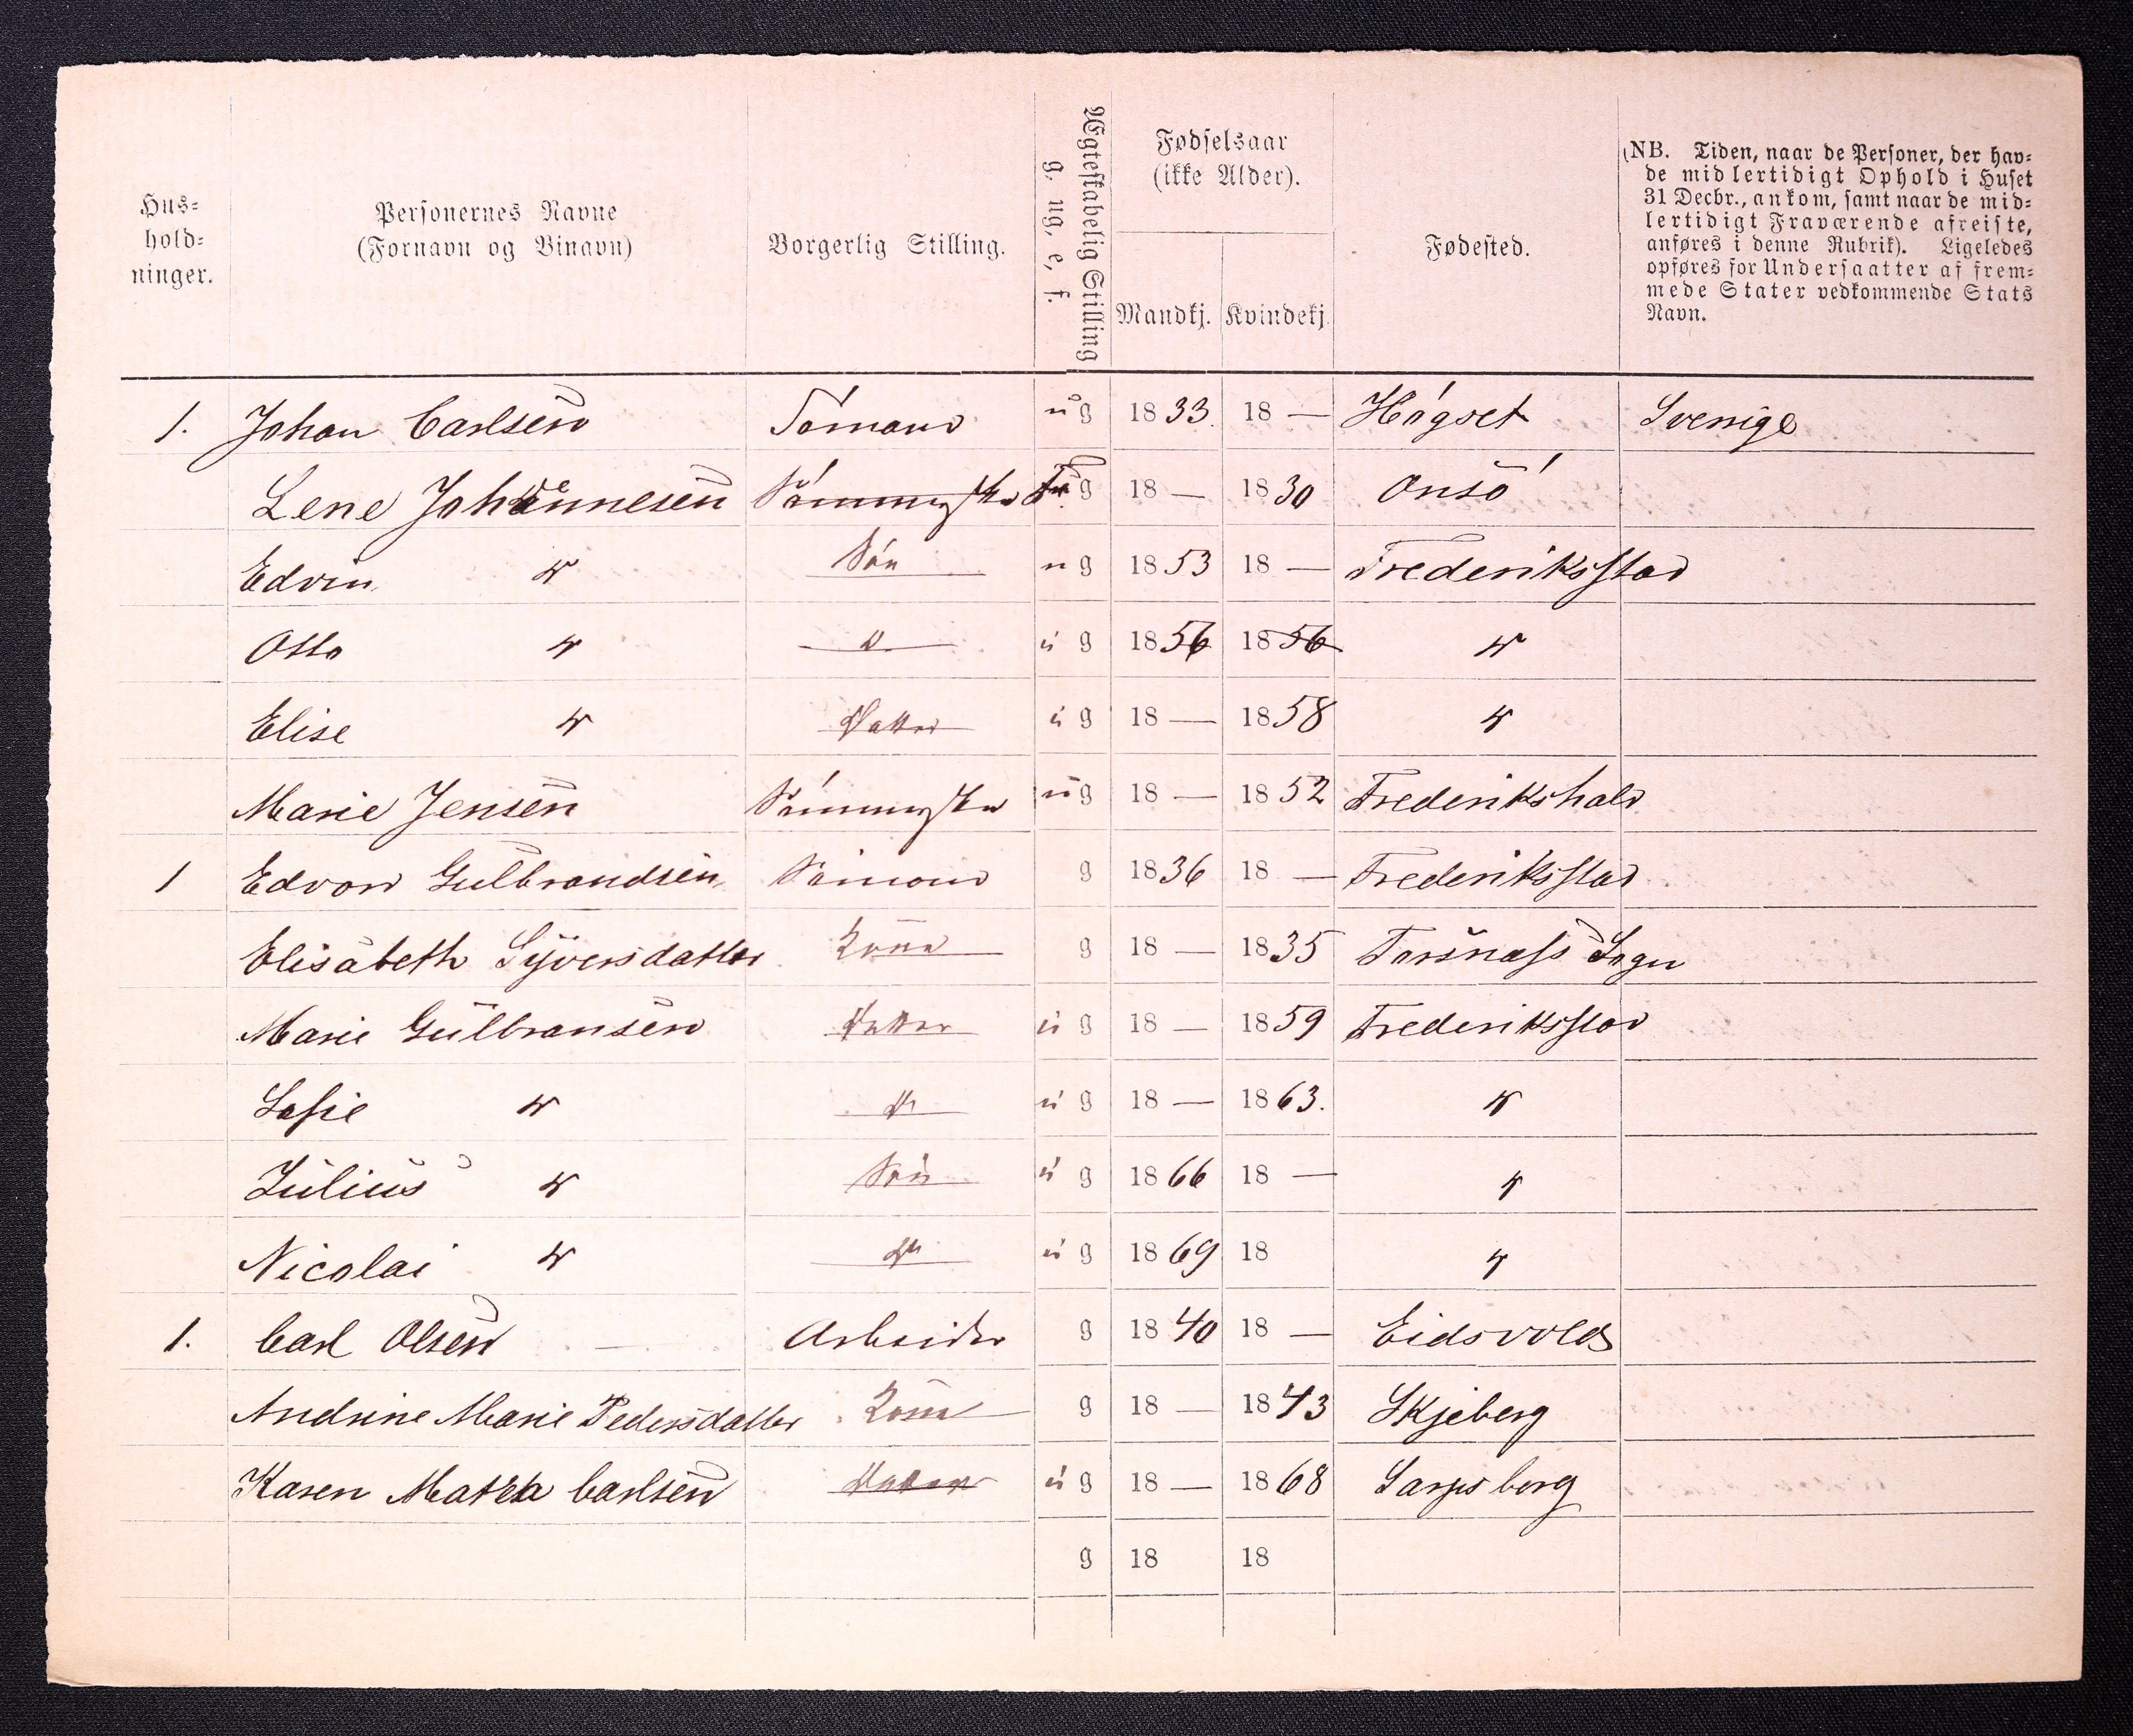 Hus-
hold-
ninger.
Personernes Navne
(Fornavn og Binavn)
Borgerlig Stilling.
Ægteskabelig Stilling
g, ug, e, f.
Fødselsaar
(ikke Alder).
Mandkj. Kvindekj.
Fødested.
(NB. Tiden, naar de Personer, der hav-
de midlertidigt Ophold i Huset
31 Decbr., ankom, samt naar de mid-
lertidigt Fraværende afreiste,
anføres i denne Rubrik). Ligeledes
opføres for Undersaatter af frem-
mede Stater vedkommende Stats
Navn.
1. Johan Carlsen Sómand ug 1833. 18 — Högset Sverrige
Lene Johannesen Sömmerske g 18 — 1830 Onsö
Edvin " Són ug 1853 18 — Frederiksstad
Otto " " ug 1856 1856 "
Elise " Datter ug 18 — 1858 "
Marie Jensen Sömmerske ug 18 — 1852 Frederikshald
1 Edvard Gulbrandsen Sömand g 1836 18 — Frederiksstad
Elisabeth Syversdatter Kone g 18 — 1835 Torsnæss Sogn
Marie Gulbransen Datter ug 18 — 1859 Frederiksstad
Sofie " " ug 18 — 1863. "
Julius " Són ug 1866 18 — "
Nicolai " " ug 1869 18 "
1. Carl Olsen — Arbeider g 1840 18 — Eidsvold
Andrine Marie Pedersdatter Kone g 18 — 1843 Skjeberg
Karen Carlsen Datter ug 18 — 1868 Sarpsborg
g 18 18